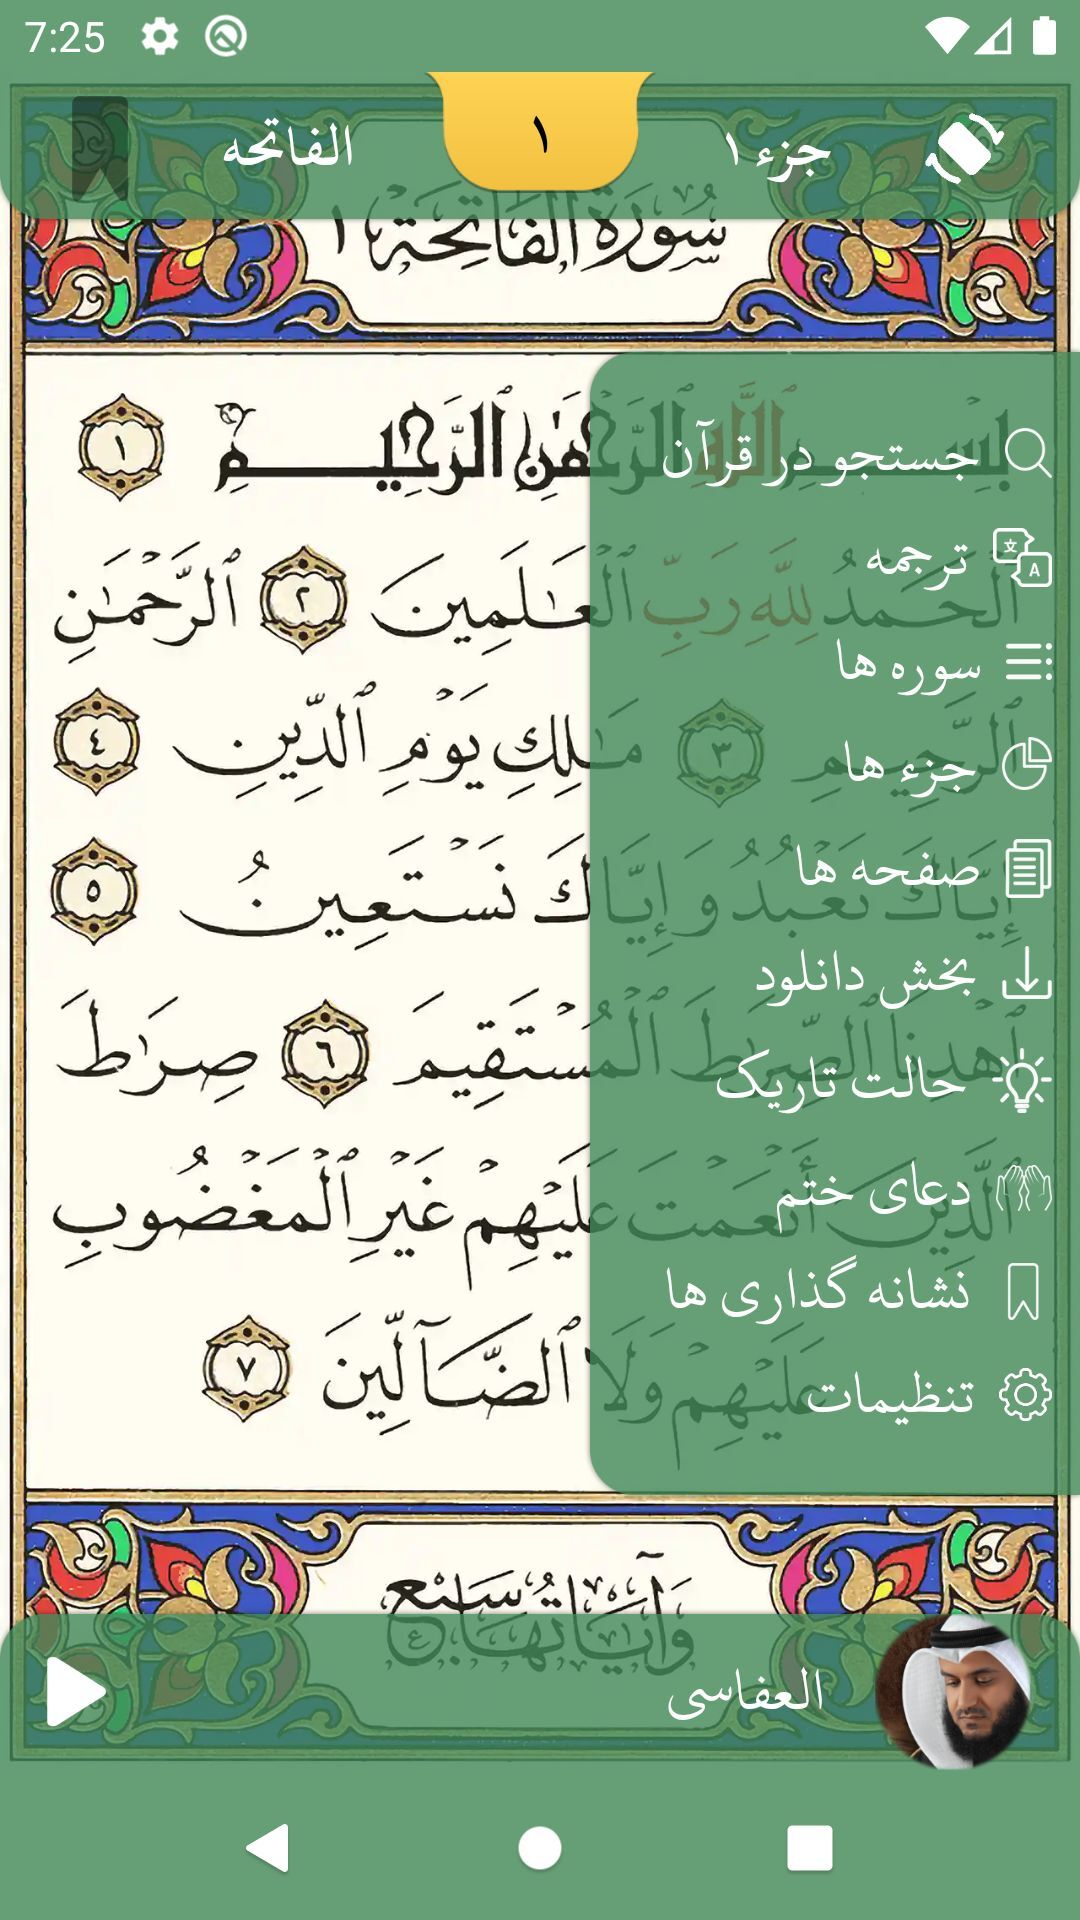 7:25
جزء ١
١
الفاتحه
سُورَةُ الفَاتِحَة ١
بِسْمِ ٱللَّهِ ٱلرَّحْمَٰنِ ٱلرَّحِيمِ ١
ٱلْحَمْدُ لِلَّهِ رَبِّ ٱلْعَٰلَمِينَ ٢ ٱلرَّحْمَٰنِ
ٱلرَّحِيمِ ٣ مَٰلِكِ يَوْمِ ٱلدِّينِ ٤
إِيَّاكَ نَعْبُدُ وَإِيَّاكَ نَسْتَعِينُ ٥
ٱهْدِنَا ٱلصِّرَٰطَ ٱلْمُسْتَقِيمَ ٦ صِرَٰطَ
ٱلَّذِينَ أَنْعَمْتَ عَلَيْهِمْ غَيْرِ ٱلْمَغْضُوبِ
عَلَيْهِمْ وَلَا ٱلضَّآلِّينَ ٧
جستجو در قرآن
ترجمه
سوره ها
جزء ها
صفحه ها
بخش دانلود
حالت تاریک
دعای ختم
نشانه گذاری ها
تنظیمات
وَآيَاتُهَا سَبْعٌ
العفاسی